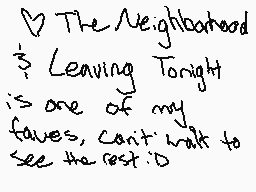 ♡ The Neighborhood
& Leaving Tonight
is one of my
faves, can't wait to
see the rest :D